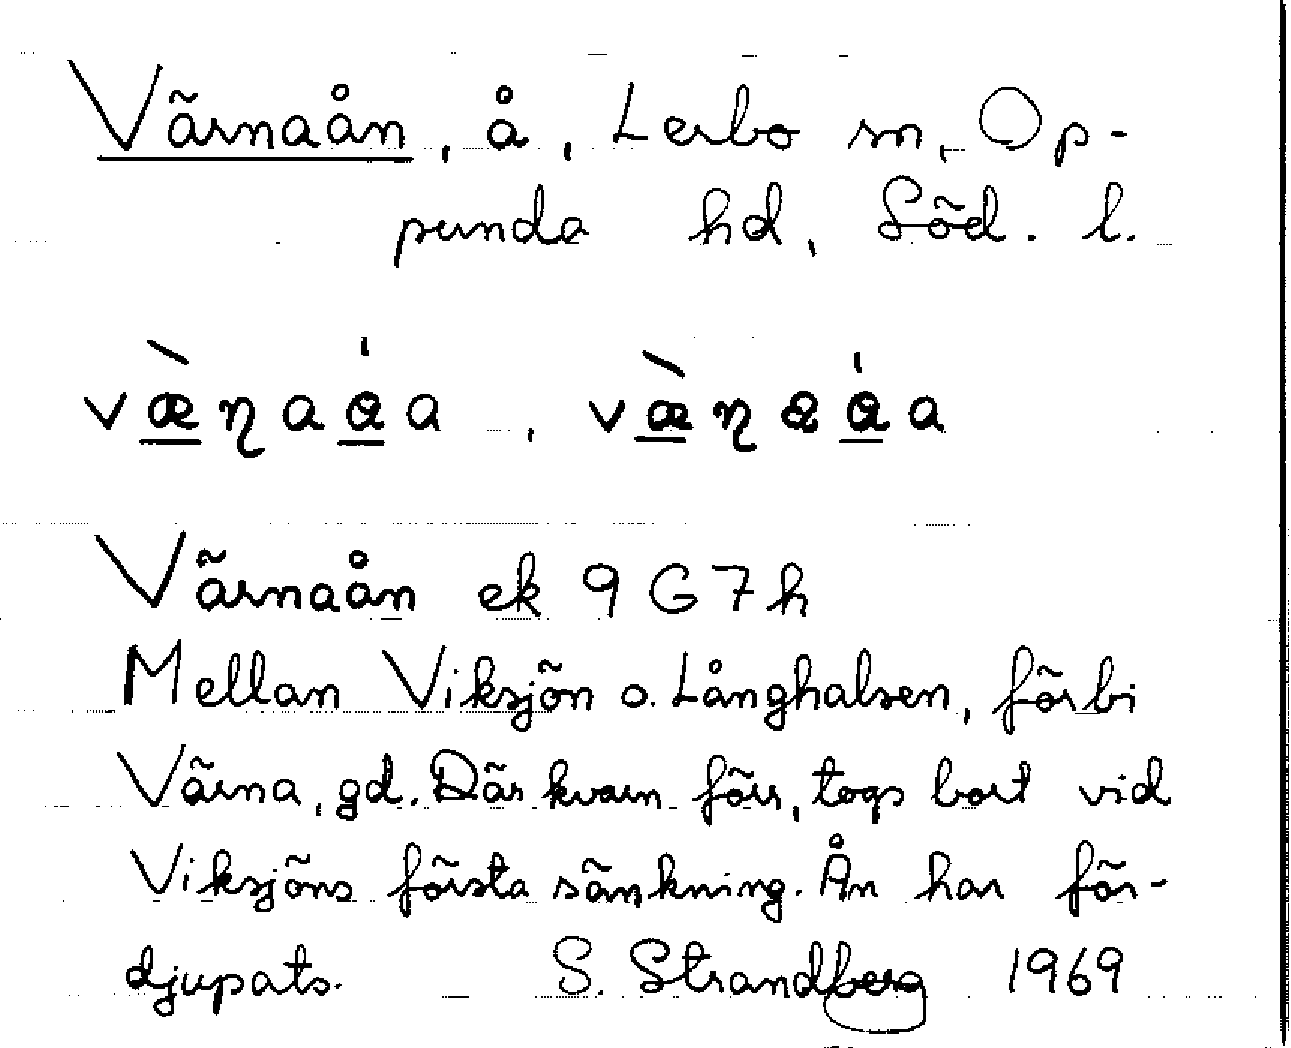 Värnaån, å, Lerbo sn, Op-
punda hd, Söd. l.
væ̠̀ɳaá̠a, væ̠̀ɳɐá̠a
Värnaån ek 9G7h
Mellan Viksjön o. Långhalsen, förbi
Värna, gd. Där kvarn förr, togs bort vid
Viksjöns första sänkning. Ån har för-
djupats. S. Strandberg 1969